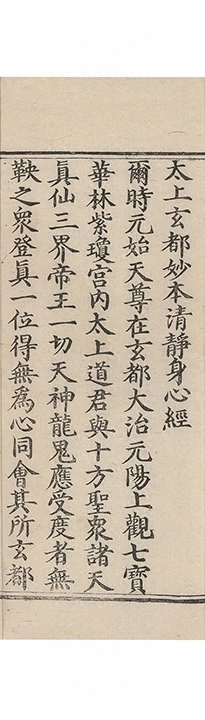 太上玄都妙本清靜身心經
爾時元始天尊在玄都大治元陽上觀七寶
華林紫瓊宮内太上道君與十方聖衆諸天
真仙三界帝王一切天神龍鬼應受度者無
鞅之衆登真一位得無爲心同會其所玄都